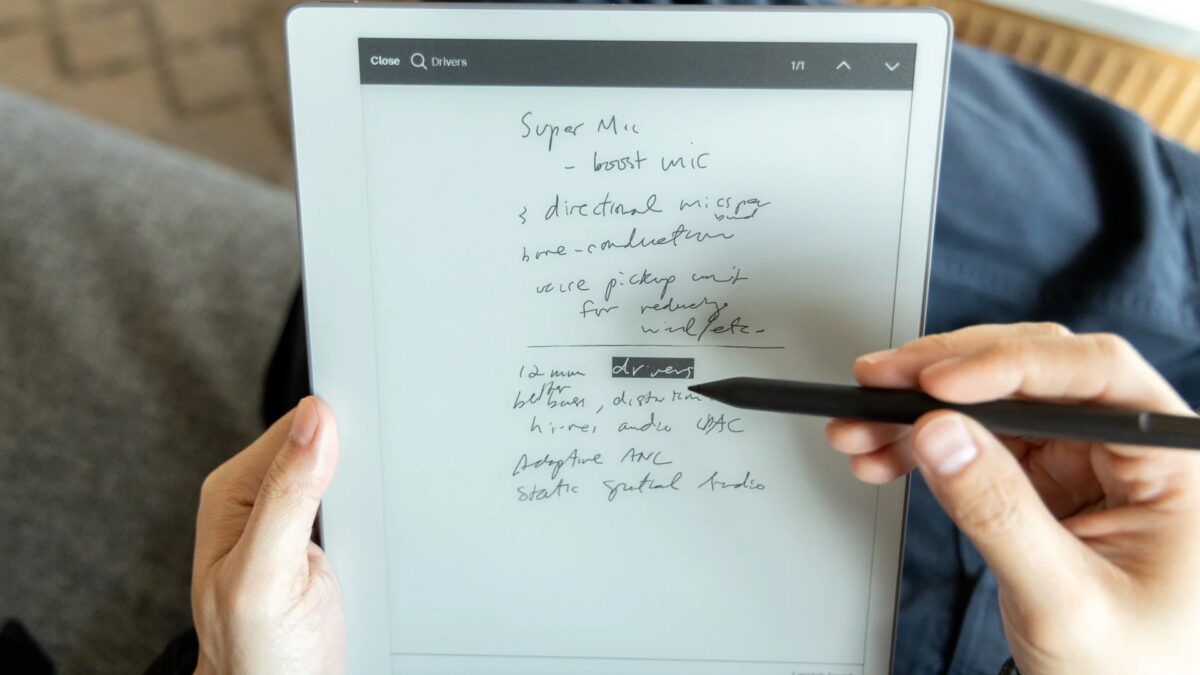 Close Drivers 1/1
Super Mic
- boost mic
3 directional mics per
bud
bone-conduction
voice pickup unit
for reducing
wind/etc-
12 mm drivers
better
bass, distortion
hi-res audio
Adaptive ANC
Static spatial Audio